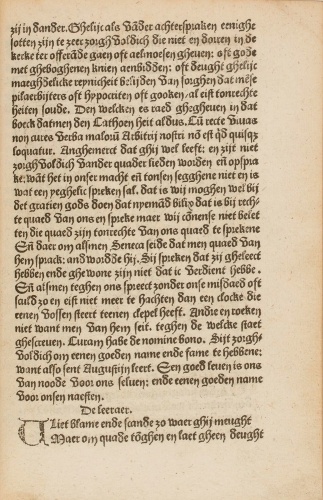 zij in dander. Ghelijc als vander achterspraken eenighe
sotten zijn te zeer zorghvoldich die niet en dorren in de
kercke ter offerāde gaen oft aelmoesen gheuen: oft gode
met gheboghenen knien aenbidden: oft deught ghelijc
maeghdelicke reynicheit belijden van sorghen dat mēse
pilaerbijters oft hypocriten oft gooken/al eist tonrechte
heiten soude. Den welcken es raed ghegheuen in dat
boeck datmen den Cathoen heit aldus. Cū recte viuas
non cures verba malorū Arbitrij nostri nō est qd quisqz
loquatur. Anghemerct dat ghij wel leeft: en zijt niet
zorghvoldich vander quader lieden worden en opspra
ke: wāt het in onser macht en tonsen segghene niet en is
wat een yeghelic spreken sal. dat is wij moghen wel bij
der gratien gods doen dat nyemād billix dat is bij rech-
te quaed van ons en spreke maer wij cōnense niet belet
ten die quaed zijn tonrechte van ons quaed te sprekene
Eñ daer om alsmen Seneca seide dat men quaed van
hem sprack: and wordde hij. Sij spreken dat zij gheleert
hebben ende ghewone zijn niet dat ic verdient hebbe.
Eñ alsmen teghen ons spreect zonder onse misdaed oft
sculd zo en eist niet meer te achten dan een clocke die
eenen vossen steert teenen clepel heeft. Andre en roeken
niet want men van hem seit. teghen de welcke staet
ghescreuen. Curam habe de nomine bono. Sijt zorgh-
voldich om eenen goeden name ende fame te hebbene:
want also sent Augustijn leert. Een goed leuen is ons
van noode voor ons seluen: ende eenen goeden name
voor onsen naesten.
De leeraer.
Vliet blame ende scande zo waer ghij meught
Maer om quade tōghen en laet gheen deught